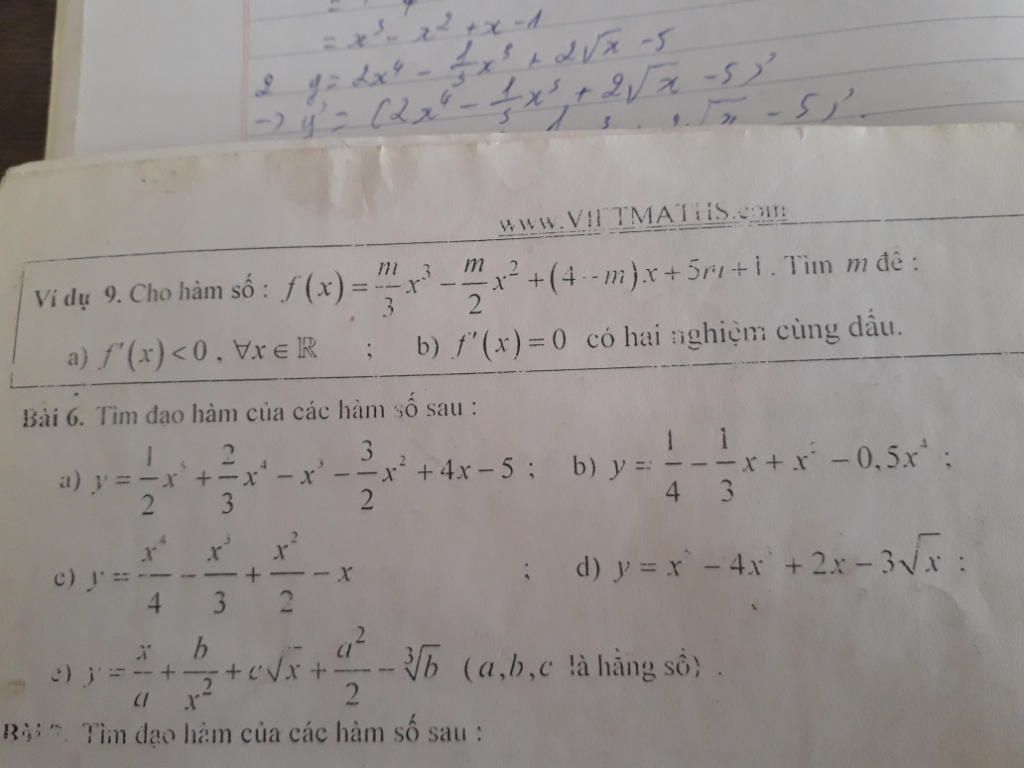 = x³ - x² + x - 1
2 y = 2x⁴ - 1/3 x³ + 2√x - 5
→ y' = (2x⁴ - 1/3 x³ + 2√x - 5)'
www.VIETMATHS.com
Ví dụ 9. Cho hàm số : f(x) = m/3 x³ - m/2 x² + (4 - m)x + 5m + 1. Tìm m để :
a) f'(x) < 0 , ∀x ∈ ℝ ; b) f'(x) = 0 có hai nghiệm cùng dấu.
Bài 6. Tìm đạo hàm của các hàm số sau :
a) y = 1/2 x⁵ + 2/3 x⁴ - x³ - 3/2 x² + 4x - 5 ; b) y = 1/4 - 1/3 x + x² - 0,5x⁴ ;
c) y = x⁴/4 - x³/3 + x²/2 - x ; d) y = x - 4x + 2x - 3√x ;
e) y = x/a + b/x² + c√x + a²/2 - ∛b (a,b,c là hằng số) .
Bài 7. Tìm đạo hàm của các hàm số sau :